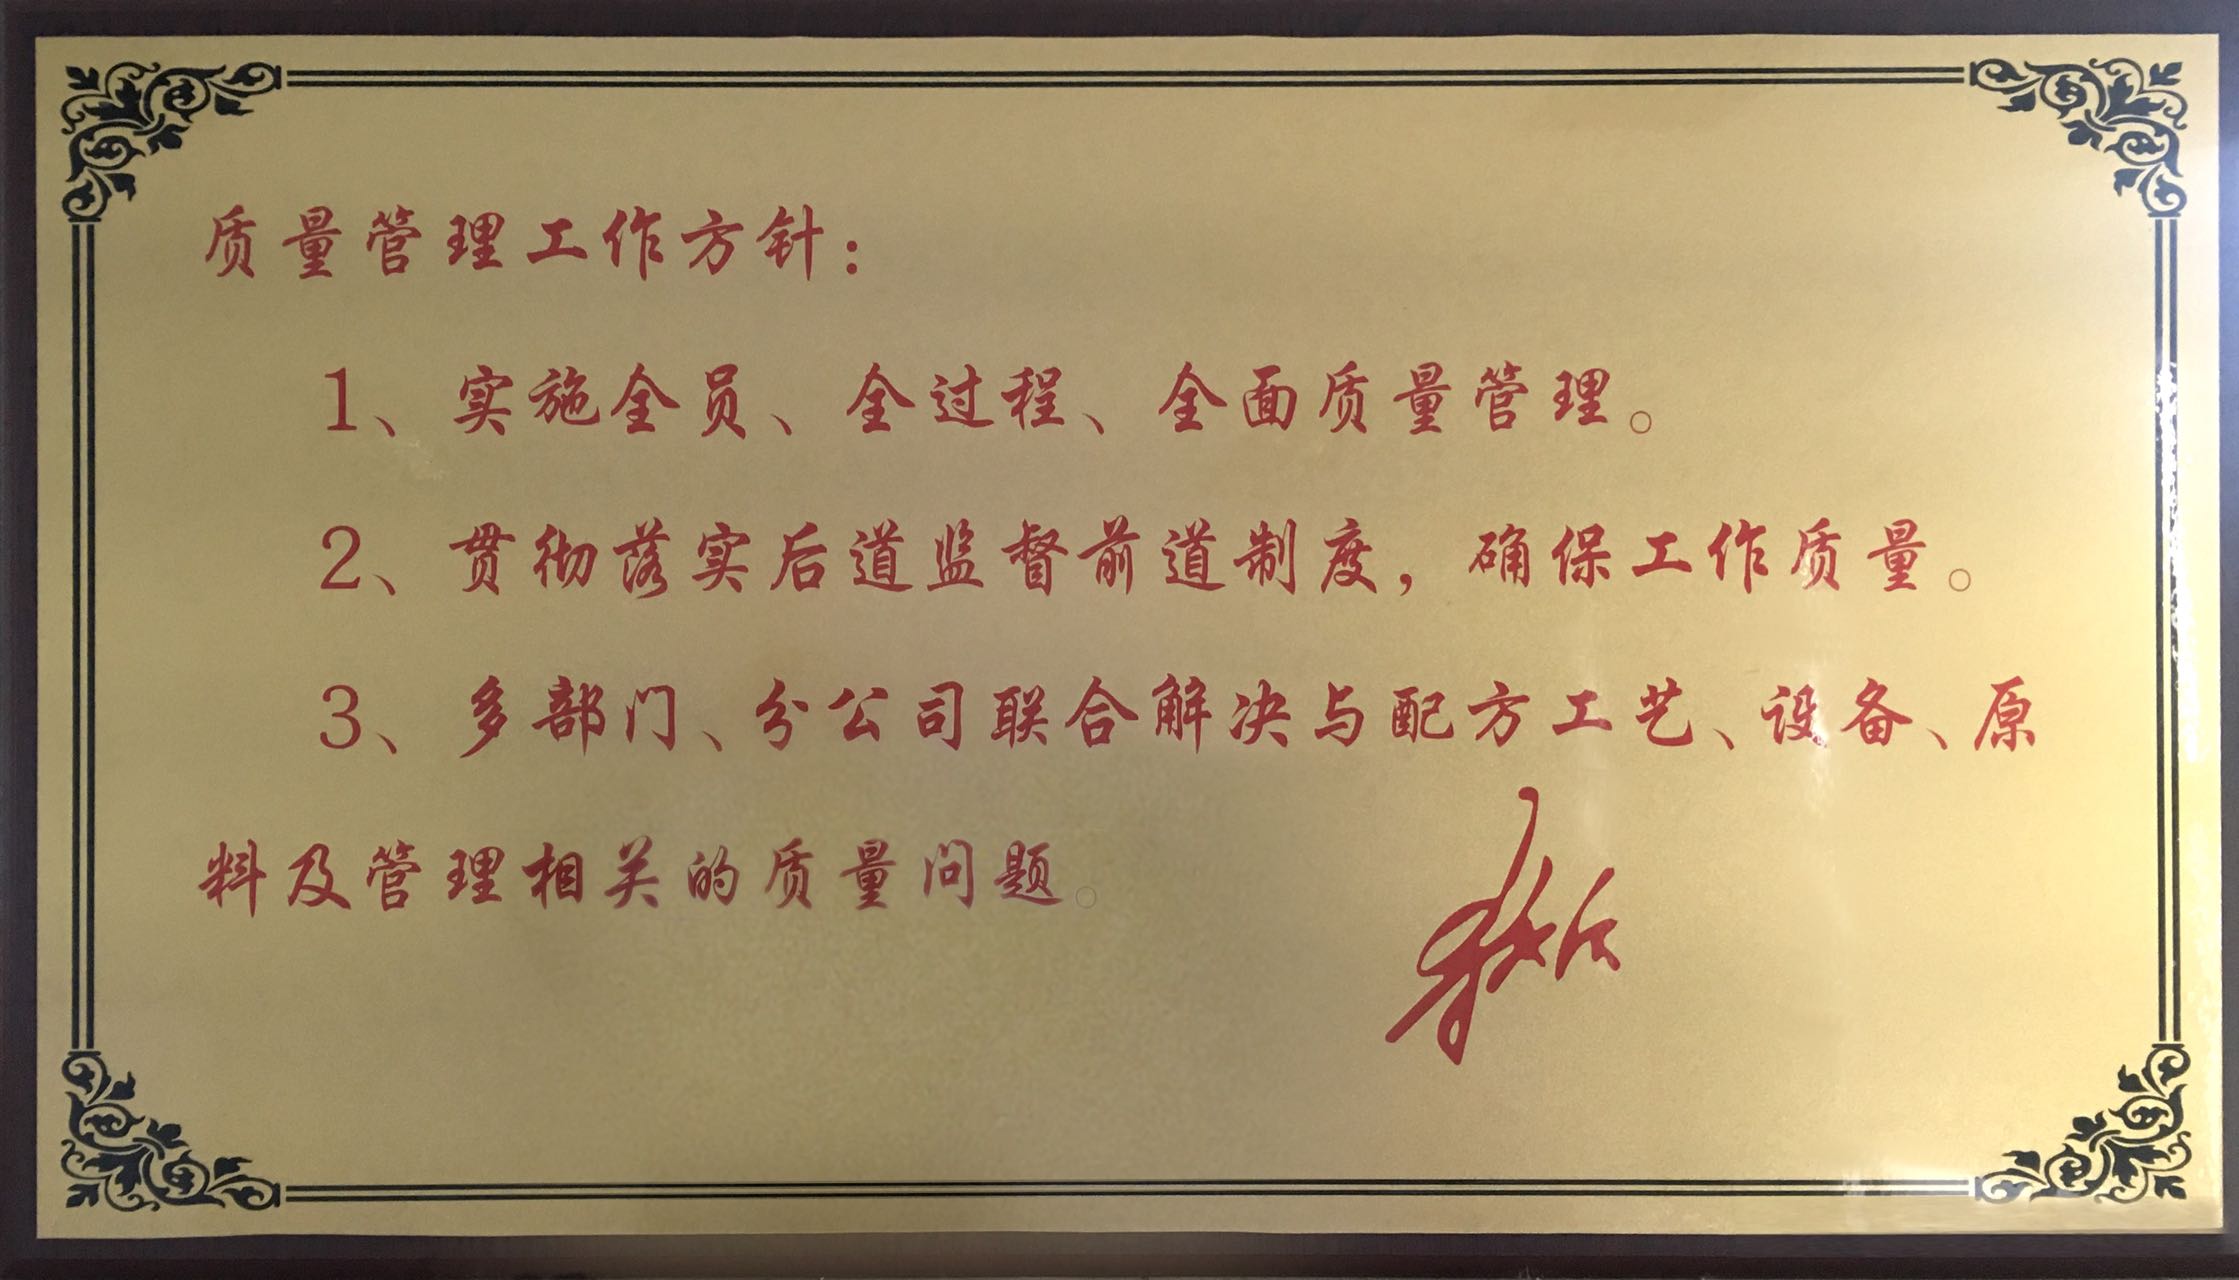 质量管理工作方针：
1、实施全员、全过程、全面质量管理。
2、贯彻落实后道监督前道制度，确保工作质量。
3、多部门、分公司联合解决与配方工艺、设备、原
料及管理相关的质量问题。